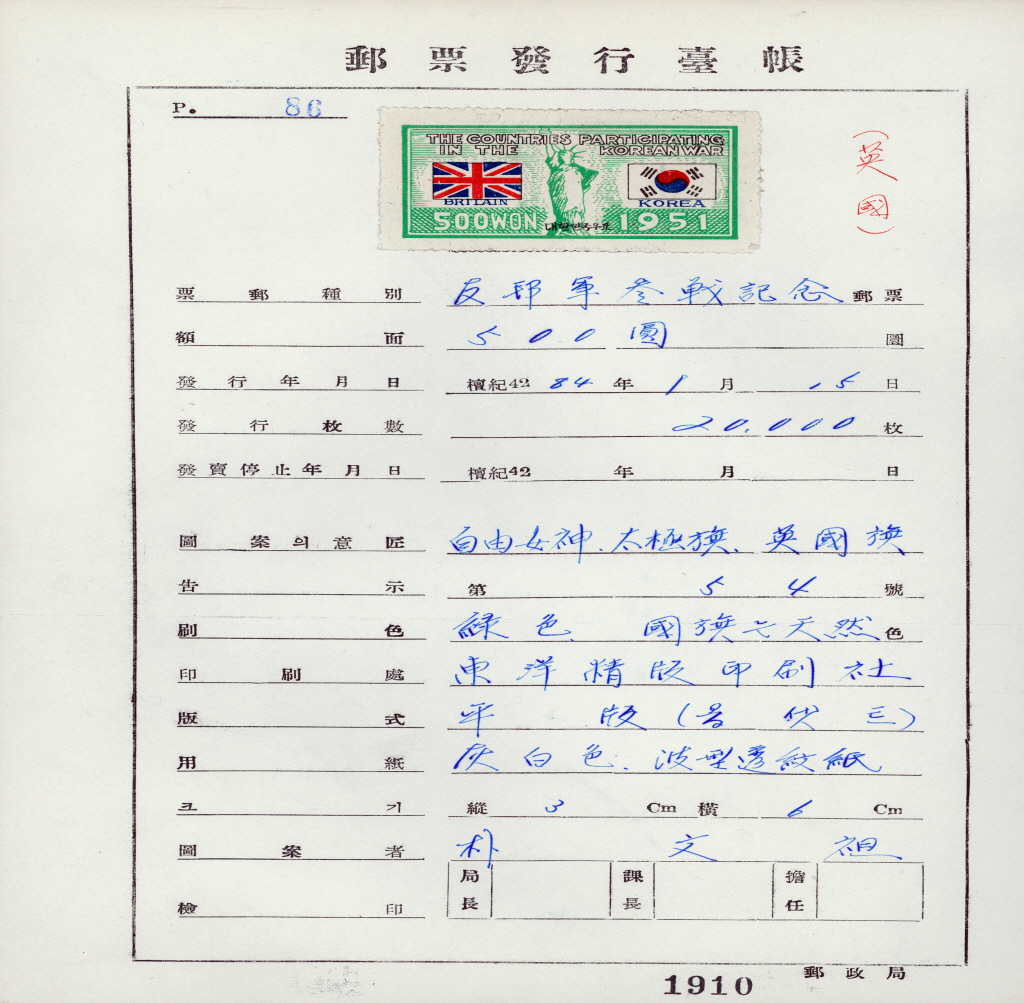 郵票發行臺帳
P. 86
THE COUNTRIES PARTICIPATING
IN THE KOREAN WAR
BRITAIN KOREA
500WON 대한민국우표 1951
(英國)
票郵種別 友邦軍參戰記念 郵票
額面 500圓 圓
發行年月日 檀紀4284年 9月 15日
發行枚數 20,000枚
發賣停止年月日 檀紀42 年 月 日
圖案의意匠 自由女神、太極旗、英國旗
告示 第 54 號
刷色 綠色 國旗는天然色
印刷處 東洋精版印刷社
版式 平版 (
用紙 灰白色、波型透紋紙
크기 縱 3 Cm 橫 6 Cm
圖案者 朴文祖
檢印 局長 課長 擔任
郵政局
1910